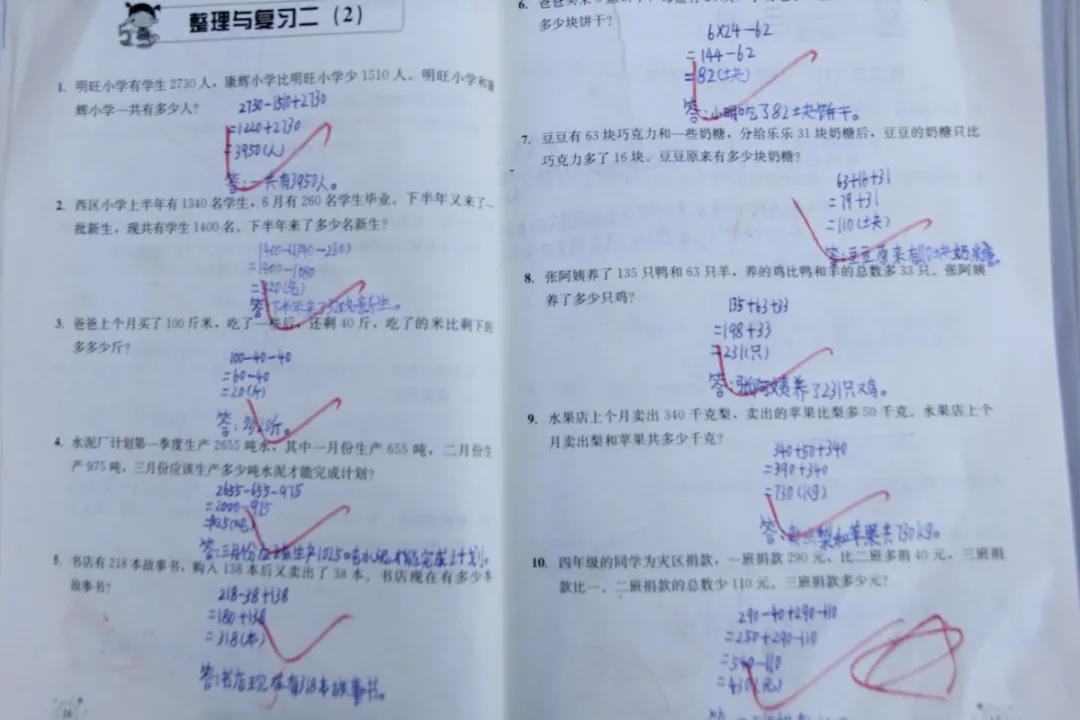 整理与复习二（2）
1. 明旺小学有学生 2730 人，康辉小学比明旺小学少 1510 人。明旺小学和康
辉小学一共有多少人？
2730-1510+2730
=1220+2730
=3950(人)
答:一共有3950人。
2. 西区小学上半年有 1340 名学生，6 月有 260 名学生毕业。下半年又来了一
批新生，现共有学生 1400 名。下半年来了多少名新生？
=1400-1080
=320(名)
3. 爸爸上个月买了 100 斤米，吃了一些后，还剩 40 斤，吃了的米比剩下的
多多少斤？
100-40-40
=60-40
=20(斤)
4. 水泥厂计划第一季度生产 2655 吨水，其中一月份生产 655 吨，二月份生
产 975 吨，三月份应该生产多少吨水泥才能完成计划？
2655-655-975
=2000-975
答:三月份应该生产1025吨水泥才能完成计划。
5. 书店有 218 本故事书，购入 138 本后又卖出了 38 本。书店现在有多少本
故事书？
218-38+138
=180+138
=318(本)
答:书店现在有318本故事书。
16
多少块饼干？
6×24-62
=144-62
=82(块)
答:小明吃了82块饼干。
7. 豆豆有 63 块巧克力和一些奶糖，分给乐乐 31 块奶糖后，豆豆的奶糖只比
巧克力多了 16 块。豆豆原来有多少块奶糖？
63+16+31
=79+31
=110(块)
答:豆豆原来有110块奶糖
8. 张阿姨养了 135 只鸭和 63 只羊，养的鸡比鸭和羊的总数多 33 只。张阿姨
养了多少只鸡？
135+63+33
=198+33
=231(只)
答:张阿姨养了231只鸡。
9. 水果店上个月卖出 340 千克梨，卖出的苹果比梨多 50 千克。水果店上个
月卖出梨和苹果共多少千克？
340+50+340
=390+340
10. 四年级的同学为灾区捐款，一班捐款 290 元，比二班多捐 40 元，三班捐
款比一、二班捐款的总数少 110 元。三班捐款多少元？
290-40+290-110
=250+290-110
=540-110
=430(元)